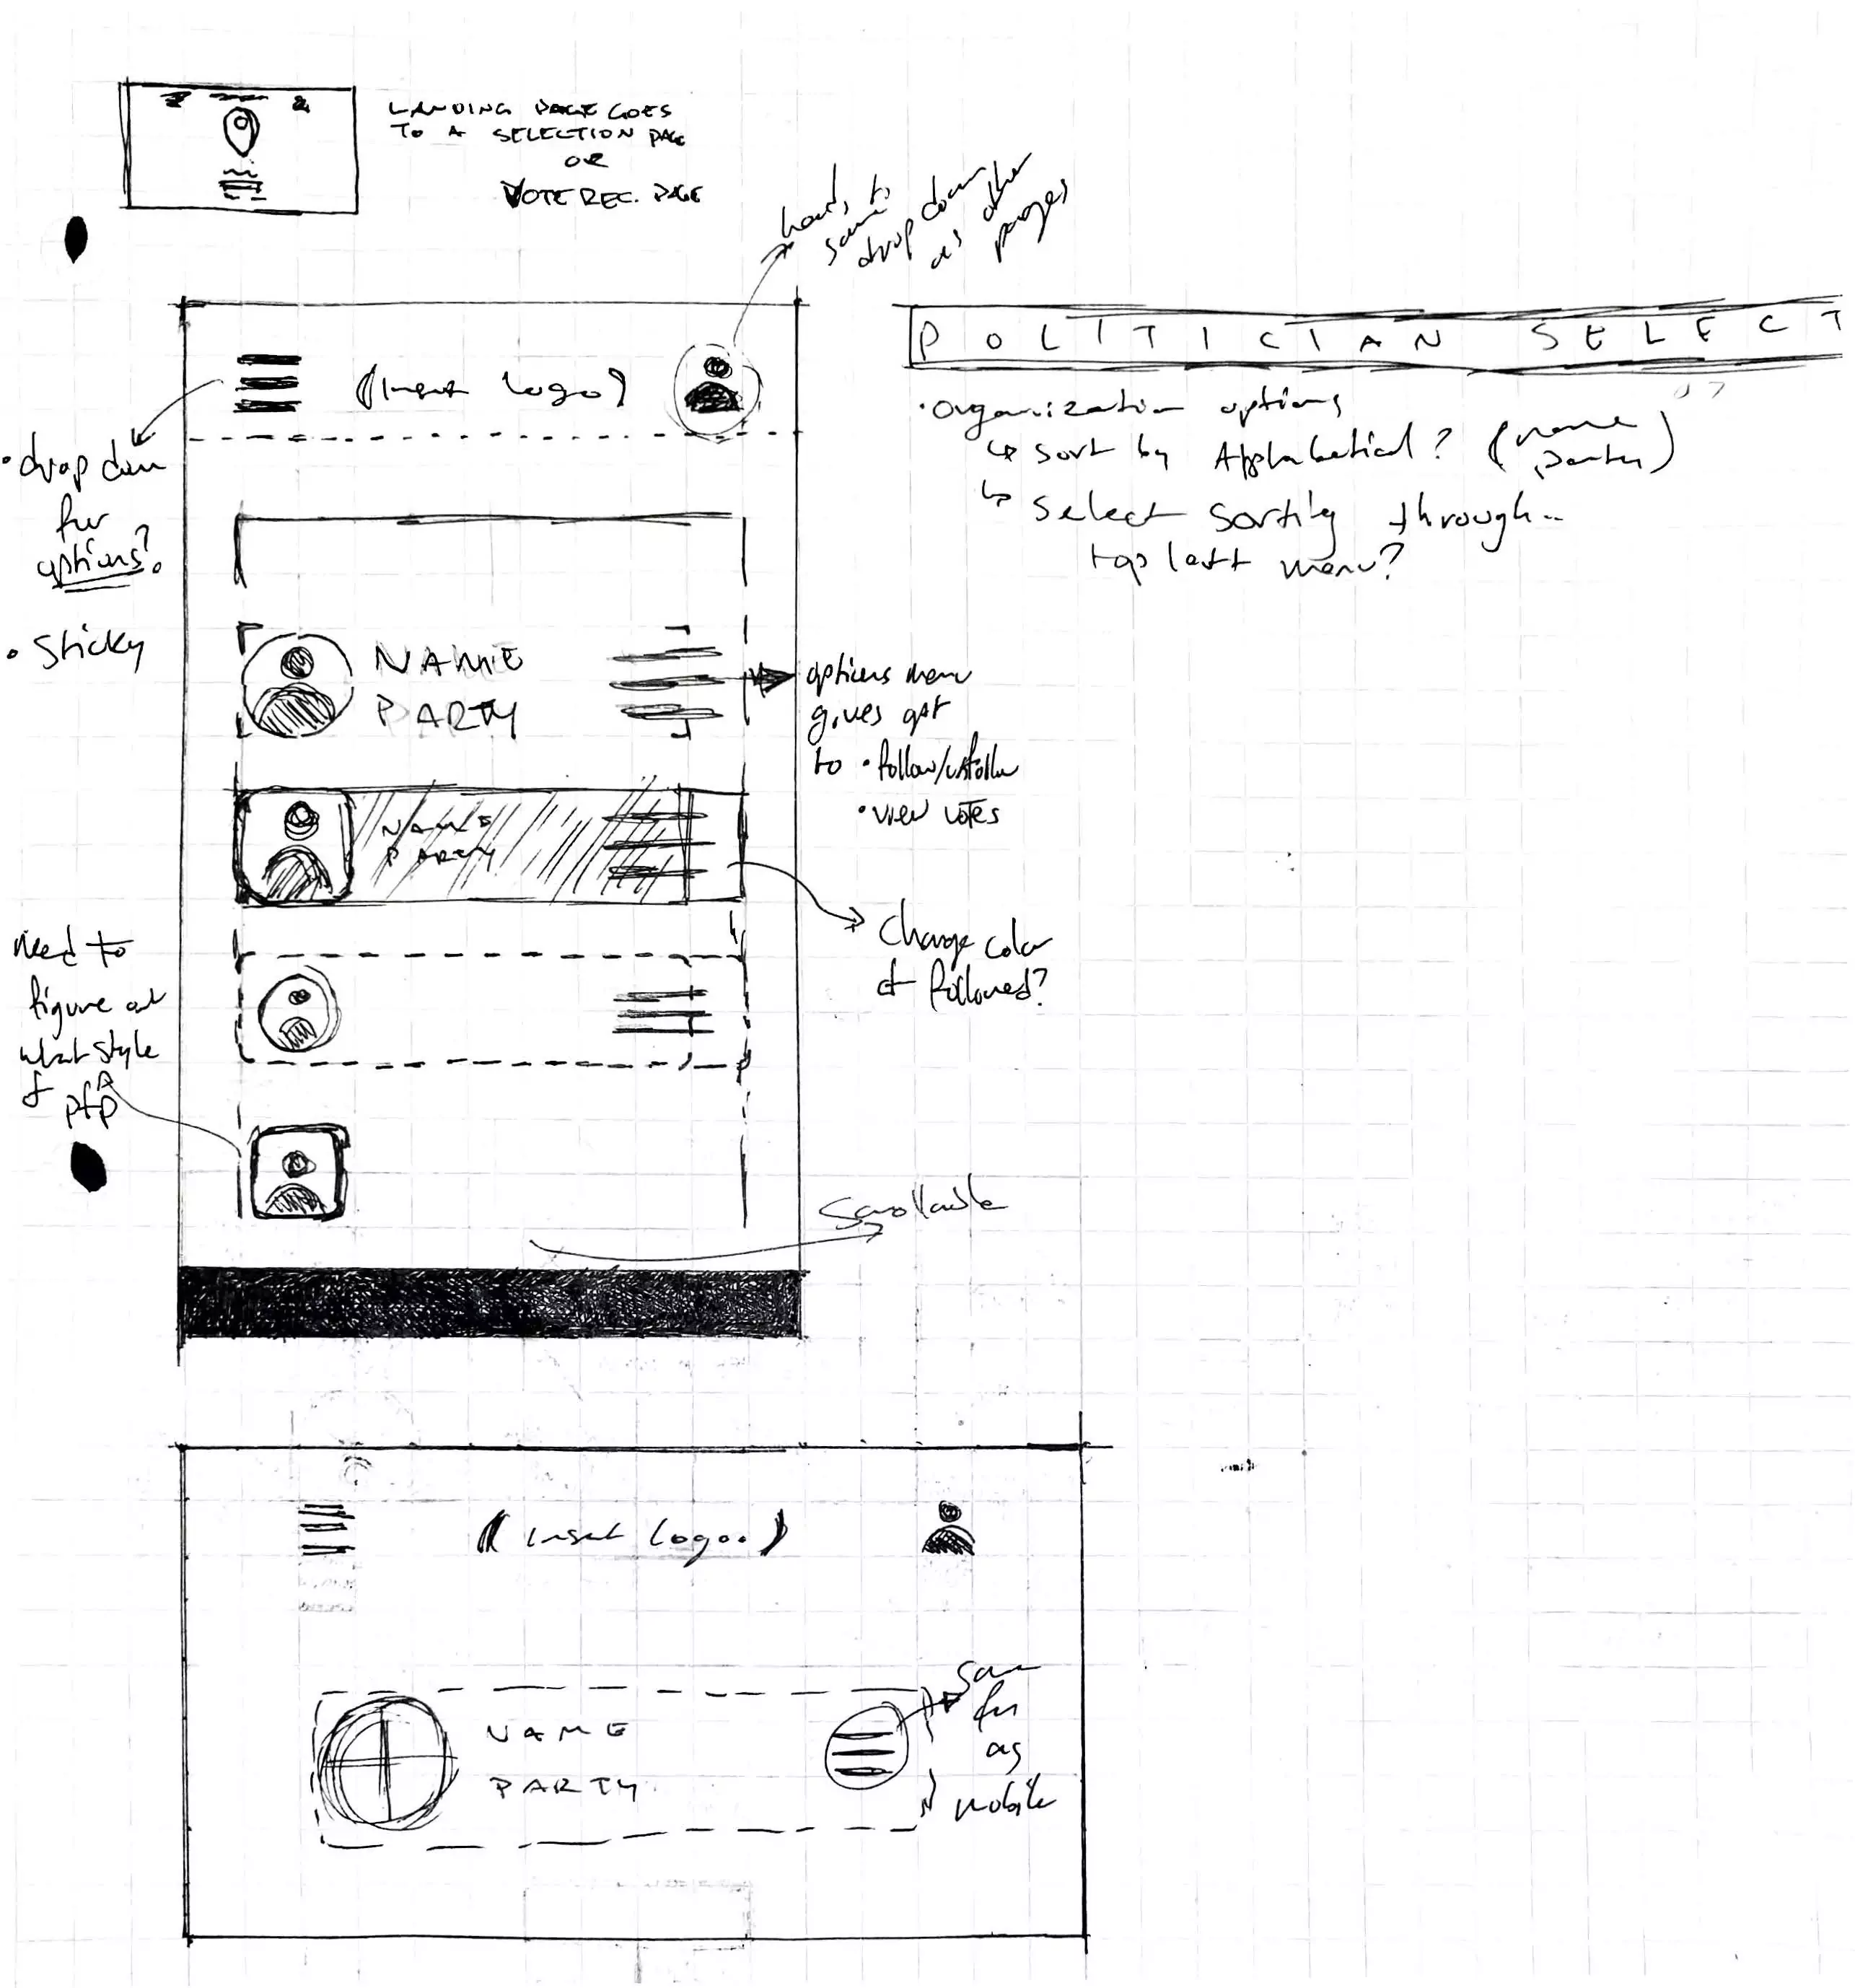 LANDING PAGE GOES
TO A SELECTION PAGE
OR
VOTE REC. PAGE
heads to
same
drop down
as other
pages
POLITICIAN SELECT
• Organization options
↳ Sort by Alphabetical? (name
party)
↳ Select sorting through..
top left menu?
(Insert logo)
• drop down
for
options?
• Sticky
NAME
PARTY
options menu
gives opt
to • follow/unfollow
• view votes
NAME
PARTY
Change color
if followed?
need to
figure out
what style
of pfp
Scrollable
(Insert logo.)
NAME
PARTY
Same
as
mobile